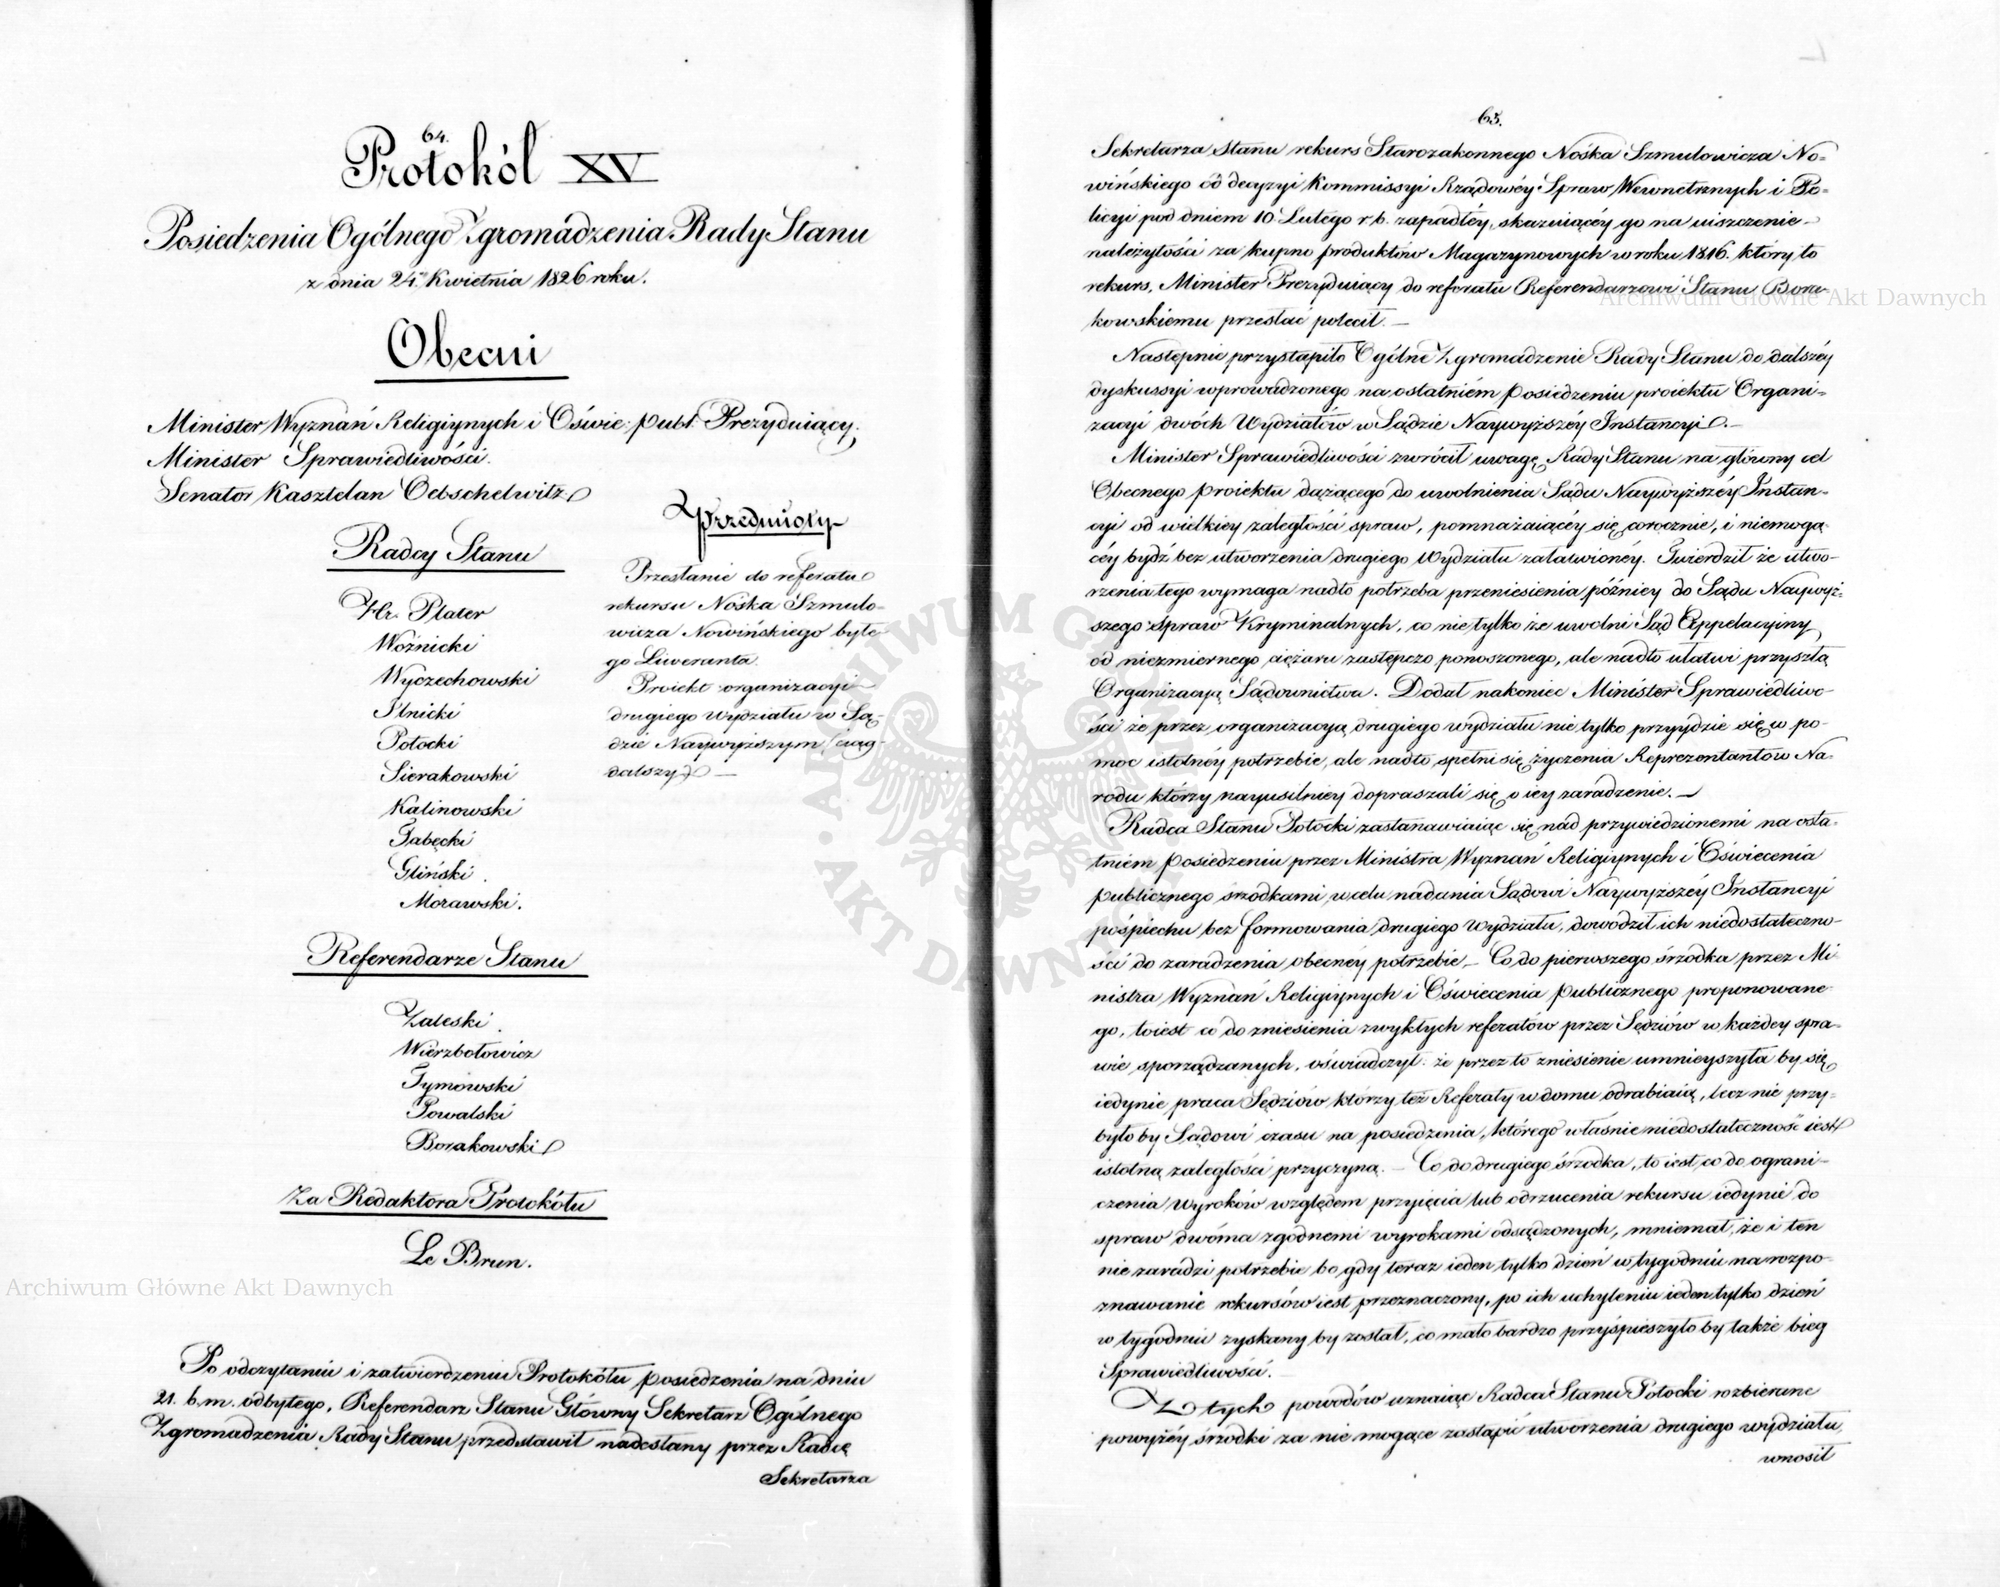 64.
Protokół XV
Posiedzenia Ogólnego Zgromadzenia Rady Stanu
z dnia 24. Kwietnia 1826 roku.
Obecni
Minister Wyznań Religiynych i Oświe: publ: Prezyduiący.
Minister Sprawiedliwości.
Senator Kasztelan Oebschelwitz
Radcy Stanu
Hr. Plater
Woźnicki
Wyczechowski
Plnicki
Potocki
Sierakowski
Kalinowski
Tabęcki
Gliński.
Morawski.
Referendarze Stanu
Zaleski.
Wierzbołowicz
Tymowski
Powalski
Borakowski
Za Redaktora Protokółu
Le Brun.
Przedmioty
Przesłanie do referatu
rekursu Nośka Szmulo-
wicza Nowińskiego byłe-
go Liweranta.
Proiekt organizacyi
drugiego wydziału w Są-
dzie Naywyższym (ciąg
dalszy) —
Po odczytaniu i zatwierdzeniu Protokółu posiedzenia na dniu
21. b.m. odbytego, Referendarz Stanu Główny Sekretarz Ogólnego
Zgromadzenia Rady Stanu przedstawił nadesłany przez Radcę
Sekretarza
65.
Sekretarza Stanu rekurs Starozakonnego Nośka Szmulowicza No-
wińskiego od decyzyi Kommissyi Rządowéy Spraw Wewnętrznych i Po-
licyi pod dniem 10 Lutego r.b. zapadłéy, skazuiącéy go na uiszczenie
należytości za kupno produktów Magazynowych w roku 1816. który to
rekurs, Minister Prezyduiący do referatu Referendarzowi Stanu Bora-
kowskiemu przesłać polecił. —
Następnie przystąpiło Ogólne Zgromadzenie Rady Stanu do dalszéy
dyskussyi wprowadzonego na ostatniém Posiedzeniu proiektu Organi-
zacyi dwóch Wydziałów w Sądzie Naywyższéy Instancyi. —
Minister Sprawiedliwości zwrócił uwagę Rady Stanu na główny cel
Obecnego proiektu dążącego do uwolnienia Sądu Naywyższéy Instan-
cyi od wielkiey zaległości spraw, pomnażaiącéy się corocznie, i niemogą-
céy bydź bez utworzenia drugiego Wydziału załatwionéy. Twierdził że utwo-
rzenia tego wymaga nadto potrzeba przeniesienia późniey do Sądu Naywyż-
szego Spraw Kryminalnych, co nie tylko że uwolni Sąd Appelacyiny
od niezmiernego ciężaru zastępczo ponoszonego, ale nadto ułatwi przyszłą
Organizacyą Sądownictwa. Dodał nakoniec Minister Sprawiedliwo-
ści że przez organizacyą drugiego wydziału nie tylko przyydzie się w po-
moc istotnéy potrzebie, ale nadto, spełni się życzenia Reprezentantów Na-
rodu którzy nayusilniey dopraszali się o iey zaradzenie. —
Radca Stanu Potocki zastanawiaiąc się nad przywiedzionemi na osta-
tniém Posiedzeniu przez Ministra Wyznań Religiynych i Oświecenia
publicznego śrzodkami, w celu nadania Sądowi Naywyższéy Instancyi
pośpiechu bez formowania drugiego Wydziału, dowodził ich niedostateczno-
ści do zaradzenia obecnéy potrzebie. — Co do pierwszego śrzodka przez Mi-
nistra Wyznań Religiynych i Oświecenia publicznego proponowane-
go, toiest co do zniesienia zwykłych referatów przez Sędziów w każdey spra-
wie sporządzanych, oświadczył: że przez to zniesienie umnieyszyła by się
iedynie praca Sędziów którzy też Referaty w domu odrabiaią, lecz nie przy-
było by Sądowi czasu na posiedzenia, którego właśnie niedostateczność iest
istotną zaległości przyczyną. — Co do drugiego śrzodka, to iest co do ograni-
czenia wyroków względem przyięcia lub odrzucenia rekursu iedynie do
spraw dwóma zgodnemi wyrokami odsądzonych, mniemał, że i ten
nie zaradzi potrzebie bo gdy teraz ieden tylko dzień w tygodniu na rozpo-
znawanie rekursów iest przeznaczony, po ich uchyleniu ieden tylko dzień
w tygodniu zyskany by został, co mało bardzo przyśpieszyło by także bieg
Sprawiedliwości. —
Z tych powodów uznaiąc Radca Stanu Potocki rozbierane
powyżéy śrzodki za nie mogące zastąpić utworzenia drugiego wydziału,
wnosił
Archiwum Główne Akt Dawnych
Archiwum Główne Akt Dawnych